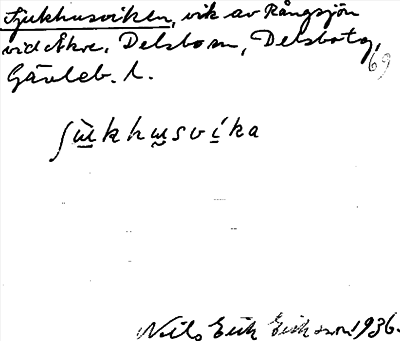 Sjukhusviken, vik av Rångsjön
vid Åkre, Delsbo sn, Delsbotg,
Gävleb. l.
69
ʃù̲kkhu̲sví̲ka
Nils Erik Eriksson 1936.